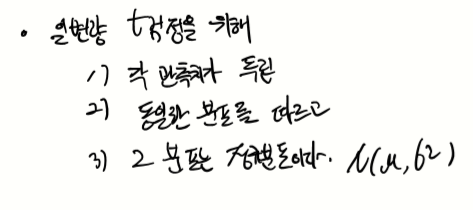 • 일변량 t검정을 위해
1) 각 관측치가 독립
2) 동일한 분포를 따르고
3) 그 분포는 정규분포이다. N(μ, σ²)